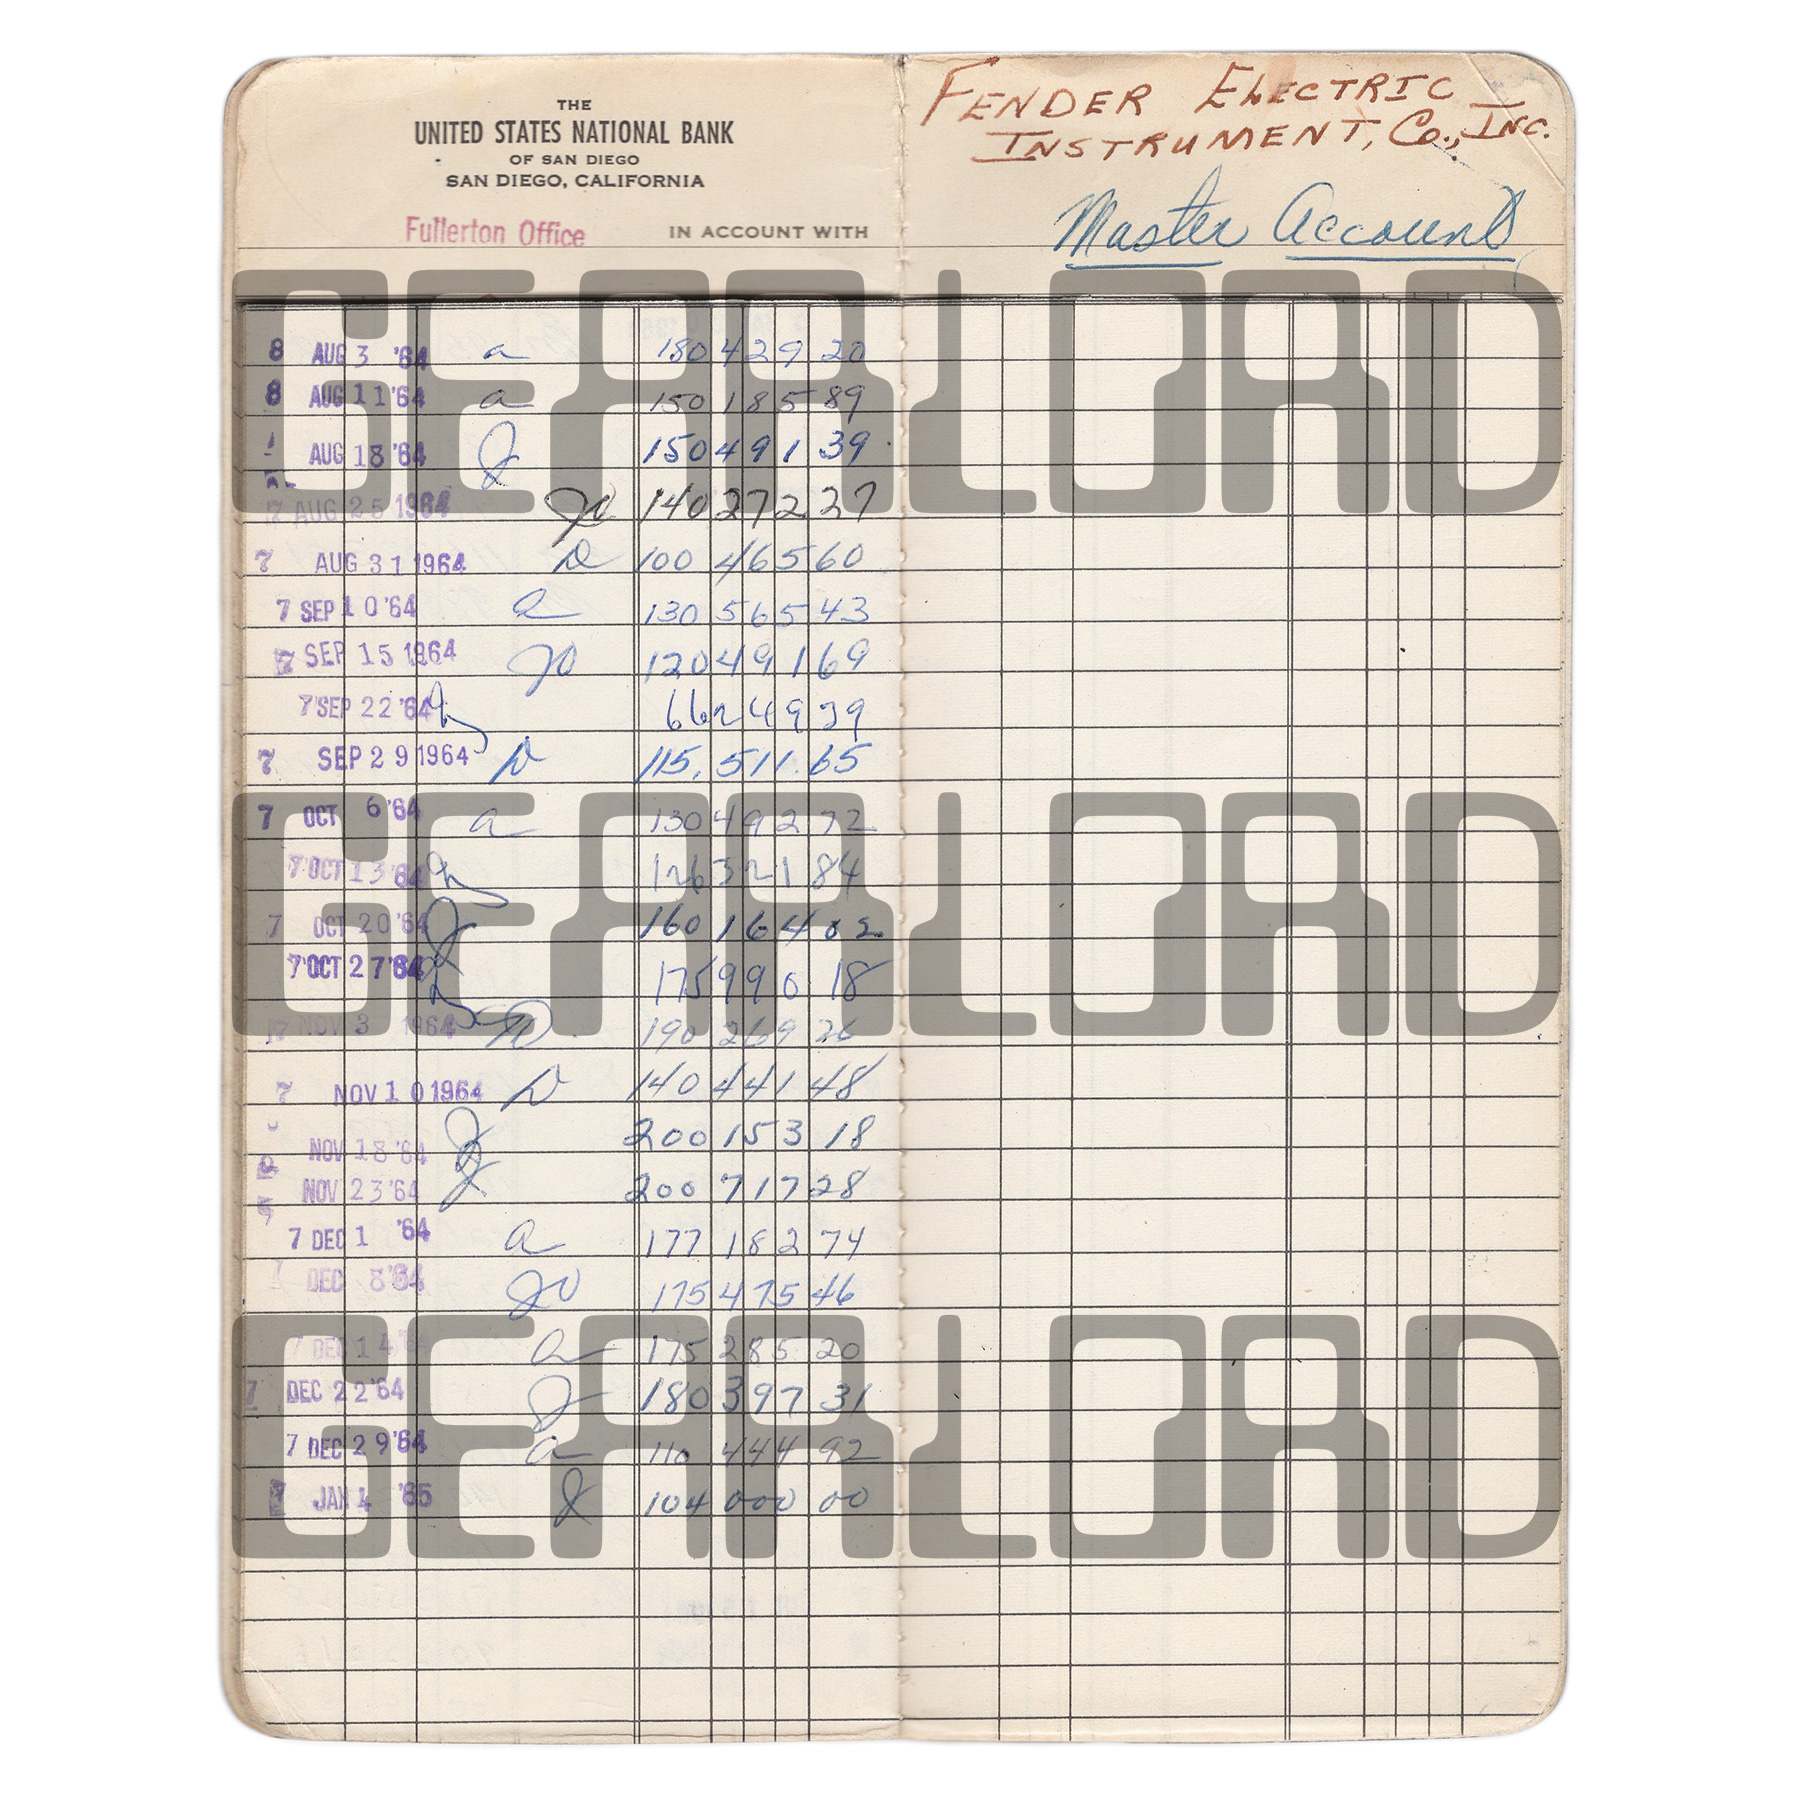 THE
UNITED STATES NATIONAL BANK
OF SAN DIEGO
SAN DIEGO, CALIFORNIA
Fullerton Office IN ACCOUNT WITH
FENDER ELECTRIC
INSTRUMENT, Co., INC.
Master Account
GEARLOAD
8 AUG 3 '64 a 180 429 20
8 AUG 11 '64 a 150 185 89
AUG 18 '64 150 491 39
7 AUG 25 1964 140 272 27
7 AUG 31 1964 100 465 60
7 SEP 10 '64 a 130 565 43
7 SEP 15 1964 120 491 69
7 SEP 22 '64 66 249 39
7 SEP 29 1964 115,511.65
GEARLOAD
7 OCT 6 '64 a 130 492 72
7 OCT 13 '64 126 321 84
7 OCT 20 '64 160 164 02
7 OCT 27 '64 175 990 18
7 NOV 3 1964 190 269 26
7 NOV 10 1964 140 441 48
NOV 18 '64 200 153 18
NOV 23 '64 200 717 28
7 DEC 1 '64 a 177 182 74
DEC 8 '64 175 475 46
GEARLOAD
7 DEC 14 '64 a 175 285 20
7 DEC 22 '64 180 397 31
7 DEC 29 '64 a 110 444 92
7 JAN 4 '65 104 000 00